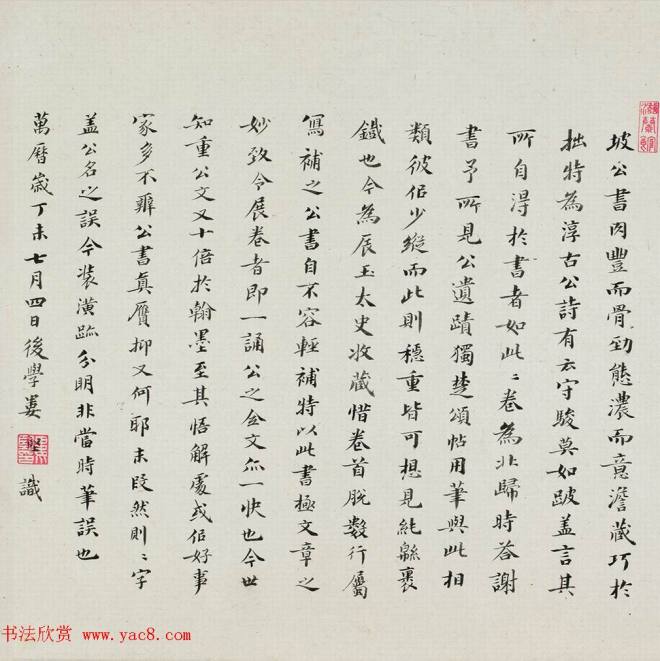 坡公書肉豐而骨勁態濃而意澹藏巧於
拙特為淳古公詩有云守駿莫如跛蓋言其
所自得於書者如此〻卷為北歸時荅謝
書予所見公遺蹟獨楚頌帖用筆與此相
類彼佀少縱而此則穩重皆可想見純緜裹
鐡也今為辰玉太史收藏惜卷首脫數行屬
寫補之公書自不容輕補特以此書極文章之
妙致令展卷者即一誦公之全文亦一快也今世
知重公文又十倍於翰墨至其悟解處或佀好事
家多不辨公書真贋抑又何耶末段然則〻字
盖公名之誤今裝潢跡分明非當時筆誤也
萬曆歲丁未七月四日後學婁堅識
书法欣赏 www.yac8.com